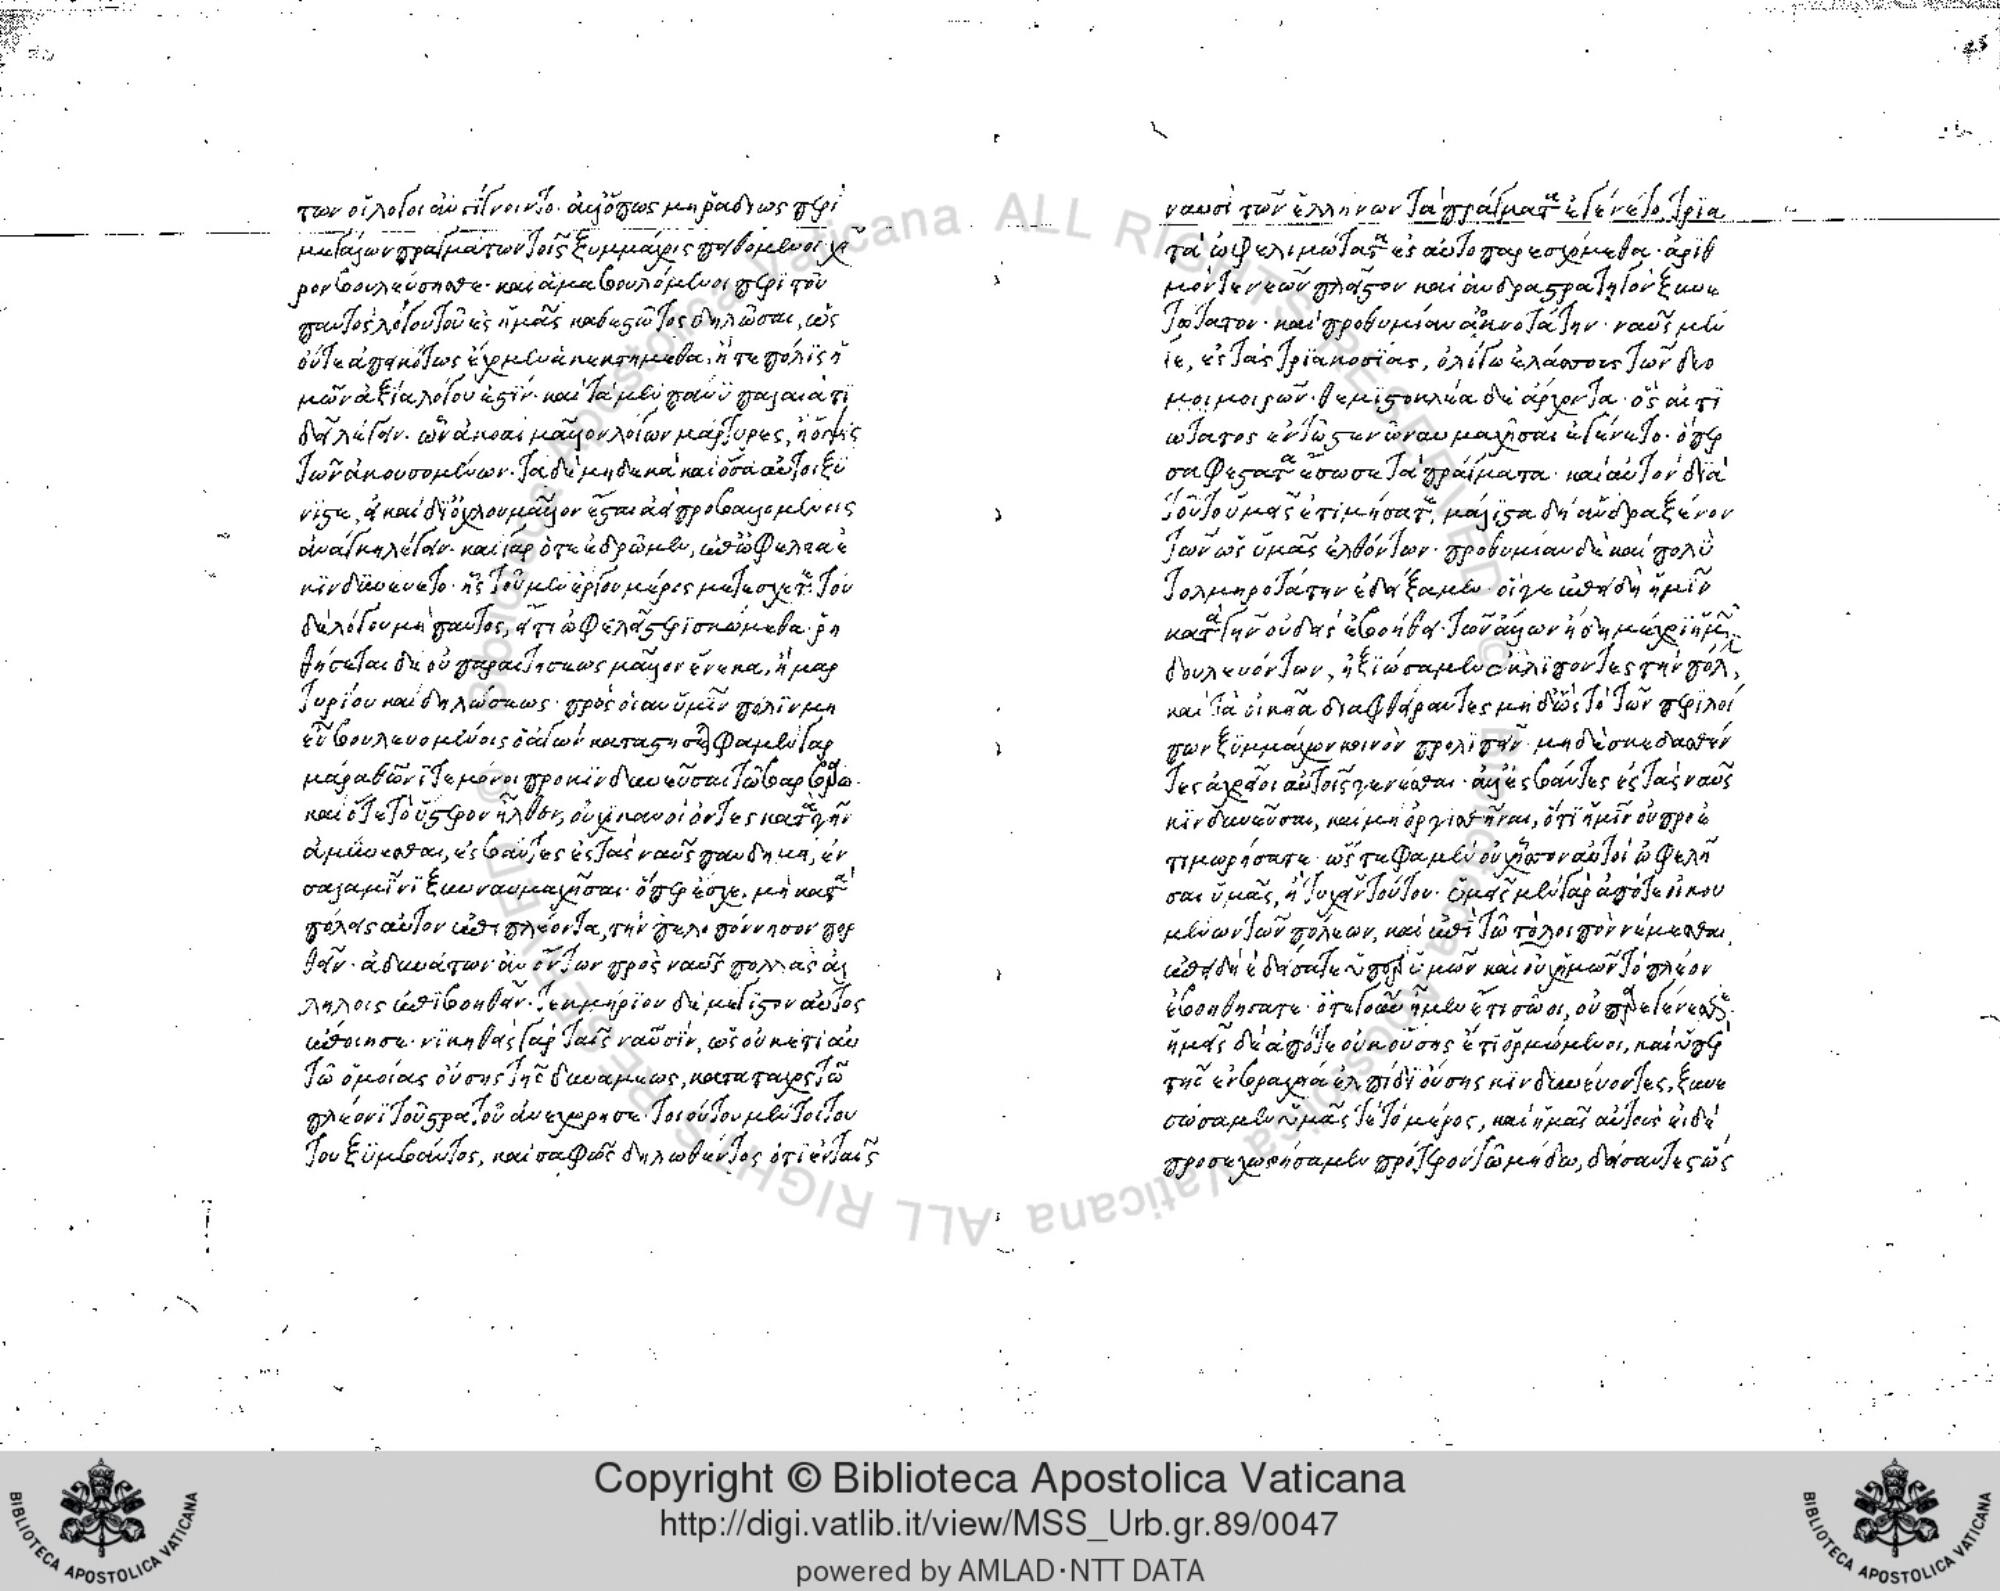 των οἱ λόγοι ἂν γίγνοιντο· ἀλλ' ὅπως μὴ ῥαδίως περὶ
μεγάλων πραγμάτων τοῖς ξυμμάχοις πειθόμενοι χεῖ
ρον βουλεύσησθε· καὶ ἅμα βουλόμενοι περὶ τοῦ
παντὸς λόγου τοῦ ἐς ἡμᾶς καθεστῶτος δηλῶσαι, ὡς
οὔτε ἀπεικότως ἔχομεν ἃ κεκτήμεθα, ἥ τε πόλις ἡ
μῶν ἀξία λόγου ἐστίν· καὶ τὰ μὲν πάνυ παλαιὰ τί
δεῖ λέγειν· ὧν ἀκοαὶ μᾶλλον λόγων μάρτυρες, ἢ ὄψις
τῶν ἀκουσομένων· τὰ δὲ μηδικὰ καὶ ὅσα αὐτοὶ ξύ
νιστε, εἰ καὶ δι' ὄχλου μᾶλλον ἔσται ἀεὶ προβαλλομένοις
ἀνάγκη λέγειν· καὶ γὰρ ὅτε ἐδρῶμεν, ἐπ' ὠφελείᾳ ἐ
κινδυνεύετο· ἧς τοῦ μὲν ἔργου μέρος μετέσχετε· τοῦ
δὲ λόγου μὴ παντὸς, εἴ τι ὠφελεῖ στερισκώμεθα· ῥη
θήσεται δὲ οὐ παραιτήσεως μᾶλλον ἕνεκα, ἢ μαρ
τυρίου καὶ δηλώσεως· πρὸς οἵαν ὑμῖν πόλιν μὴ
εὖ βουλευομένοις ὁ ἀγὼν καταστήσεται φαμὲν γὰρ
μαραθῶνί τε μόνοι προκινδυνεῦσαι τῷ βαρβάρῳ·
καὶ ὅτε τὸ ὕστερον ἦλθεν, οὐχ ἱκανοὶ ὄντες κατὰ γῆν
ἀμύνεσθαι, ἐσβάντες ἐς τὰς ναῦς πανδημεὶ, ἐν
σαλαμῖνι ξυνναυμαχῆσαι· ὅπερ ἔσχε μὴ κατὰ
πόλεις αὐτὸν ἐπιπλέοντα, τὴν πελοπόννησον πορ
θεῖν· ἀδυνάτων ἂν ὄντων πρὸς ναῦς πολλὰς ἀλ
λήλοις ἐπιβοηθεῖν· τεκμήριον δὲ μέγιστον αὐτὸς
ἐποίησε· νικηθεὶς γὰρ ταῖς ναυσὶν, ὡς οὐκέτι αὐ
τῷ ὁμοίας οὔσης τῆς δυνάμεως, κατὰ τάχος τῷ
πλέονι τοῦ στρατοῦ ἀνεχώρησε· τοιούτου μέντοι του
του ξυμβάντος, καὶ σαφῶς δηλωθέντος ὅτι ἐν ταῖς
ναυσὶ τῶν ἑλλήνων τὰ πράγματα ἐγένετο, τρία
τὰ ὠφελιμώτατα ἐς αὐτὸ παρεσχόμεθα· ἀριθ
μόν τε νεῶν πλεῖστον καὶ ἄνδρα στρατηγὸν ξυνε
τώτατον· καὶ προθυμίαν ἀοκνοτάτην· ναῦς μέν
γε, ἐς τὰς τριακοσίας, ὀλίγῳ ἐλάσσους τῶν δύο
μοιρῶν· θεμιστοκλέα δὲ ἄρχοντα· ὃς αἰτι
ώτατος ἐν τῷ στενῷ ναυμαχῆσαι ἐγένετο· ὅπερ
σαφέστατα ἔσωσε τὰ πράγματα· καὶ αὐτὸν διὰ
τοῦτο ὑμεῖς ἐτιμήσατε, μάλιστα δὴ ἄνδρα ξένον
τῶν ὡς ὑμᾶς ἐλθόντων· προθυμίαν δὲ καὶ πολὺ
τολμηροτάτην ἐδείξαμεν· οἵ γε ἐπειδὴ ἡμῖν
κατὰ γῆν οὐδεὶς ἐβοήθει· τῶν ἄλλων ἤδη μέχρι ἡμῶν
δουλευόντων, ἠξιώσαμεν ἐκλιπόντες τὴν πόλιν
καὶ τὰ οἰκεῖα διαφθείραντες μηδ' ὣς τὸ τῶν περιλοί
πων ξυμμάχων κοινὸν προλιπεῖν· μηδὲ σκεδασθέν
τες ἀχρεῖοι αὐτοῖς γενέσθαι· ἀλλ' ἐσβάντες ἐς τὰς ναῦς
κινδυνεῦσαι, καὶ μὴ ὀργισθῆναι, ὅτι ἡμῖν οὐ προε
τιμωρήσατε· ὥστε φαμὲν οὐχ ἧσσον αὐτοὶ ὠφελῆ
σαι ὑμᾶς, ἢ τυχεῖν τούτου· ὑμεῖς μὲν γὰρ ἀπό τε οἰκου
μένων τῶν πόλεων, καὶ ἐπὶ τῷ τὸ λοιπὸν νέμεσθαι,
ἐπειδὴ ἐδείσατε ὑπὲρ ὑμῶν καὶ οὐχ ἡμῶν τὸ πλέον
ἐβοηθήσατε· ὅτε γοῦν ἦμεν ἔτι σῶοι, οὐ παρεγένεσθε·
ἡμεῖς δὲ ἀπό τε οὐκ οὔσης ἔτι ὁρμώμενοι, καὶ ὑπὲρ
τῆς ἐν βραχείᾳ ἐλπίδι οὔσης κινδυνεύοντες, ξυνε
σώσαμεν ὑμᾶς τε τὸ μέρος, καὶ ἡμᾶς αὐτούς εἰ δὲ
προσεχωρήσαμεν πρότερον τῷ μήδῳ, δείσαντες ὡς